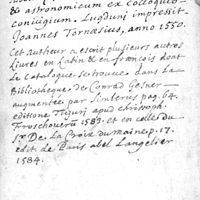 & astronomicum ex colloquio
Coniugium. Lugduni impressit
Joannes Tornæsius, anno 1550.
Cet Autheur a escrit plusieurs autres
livres en Latin & en françois dont
le Catalogue se trouve dans la
Bibliotheque de Conrad Gesner
augmentée par Simlerus pag. 64
editione Tiguri apud Christoph.
Froschoverum 1583. et en celle du
Sr De La Croix du maine p. 17.
edit. de Paris abel Langelier
1584.